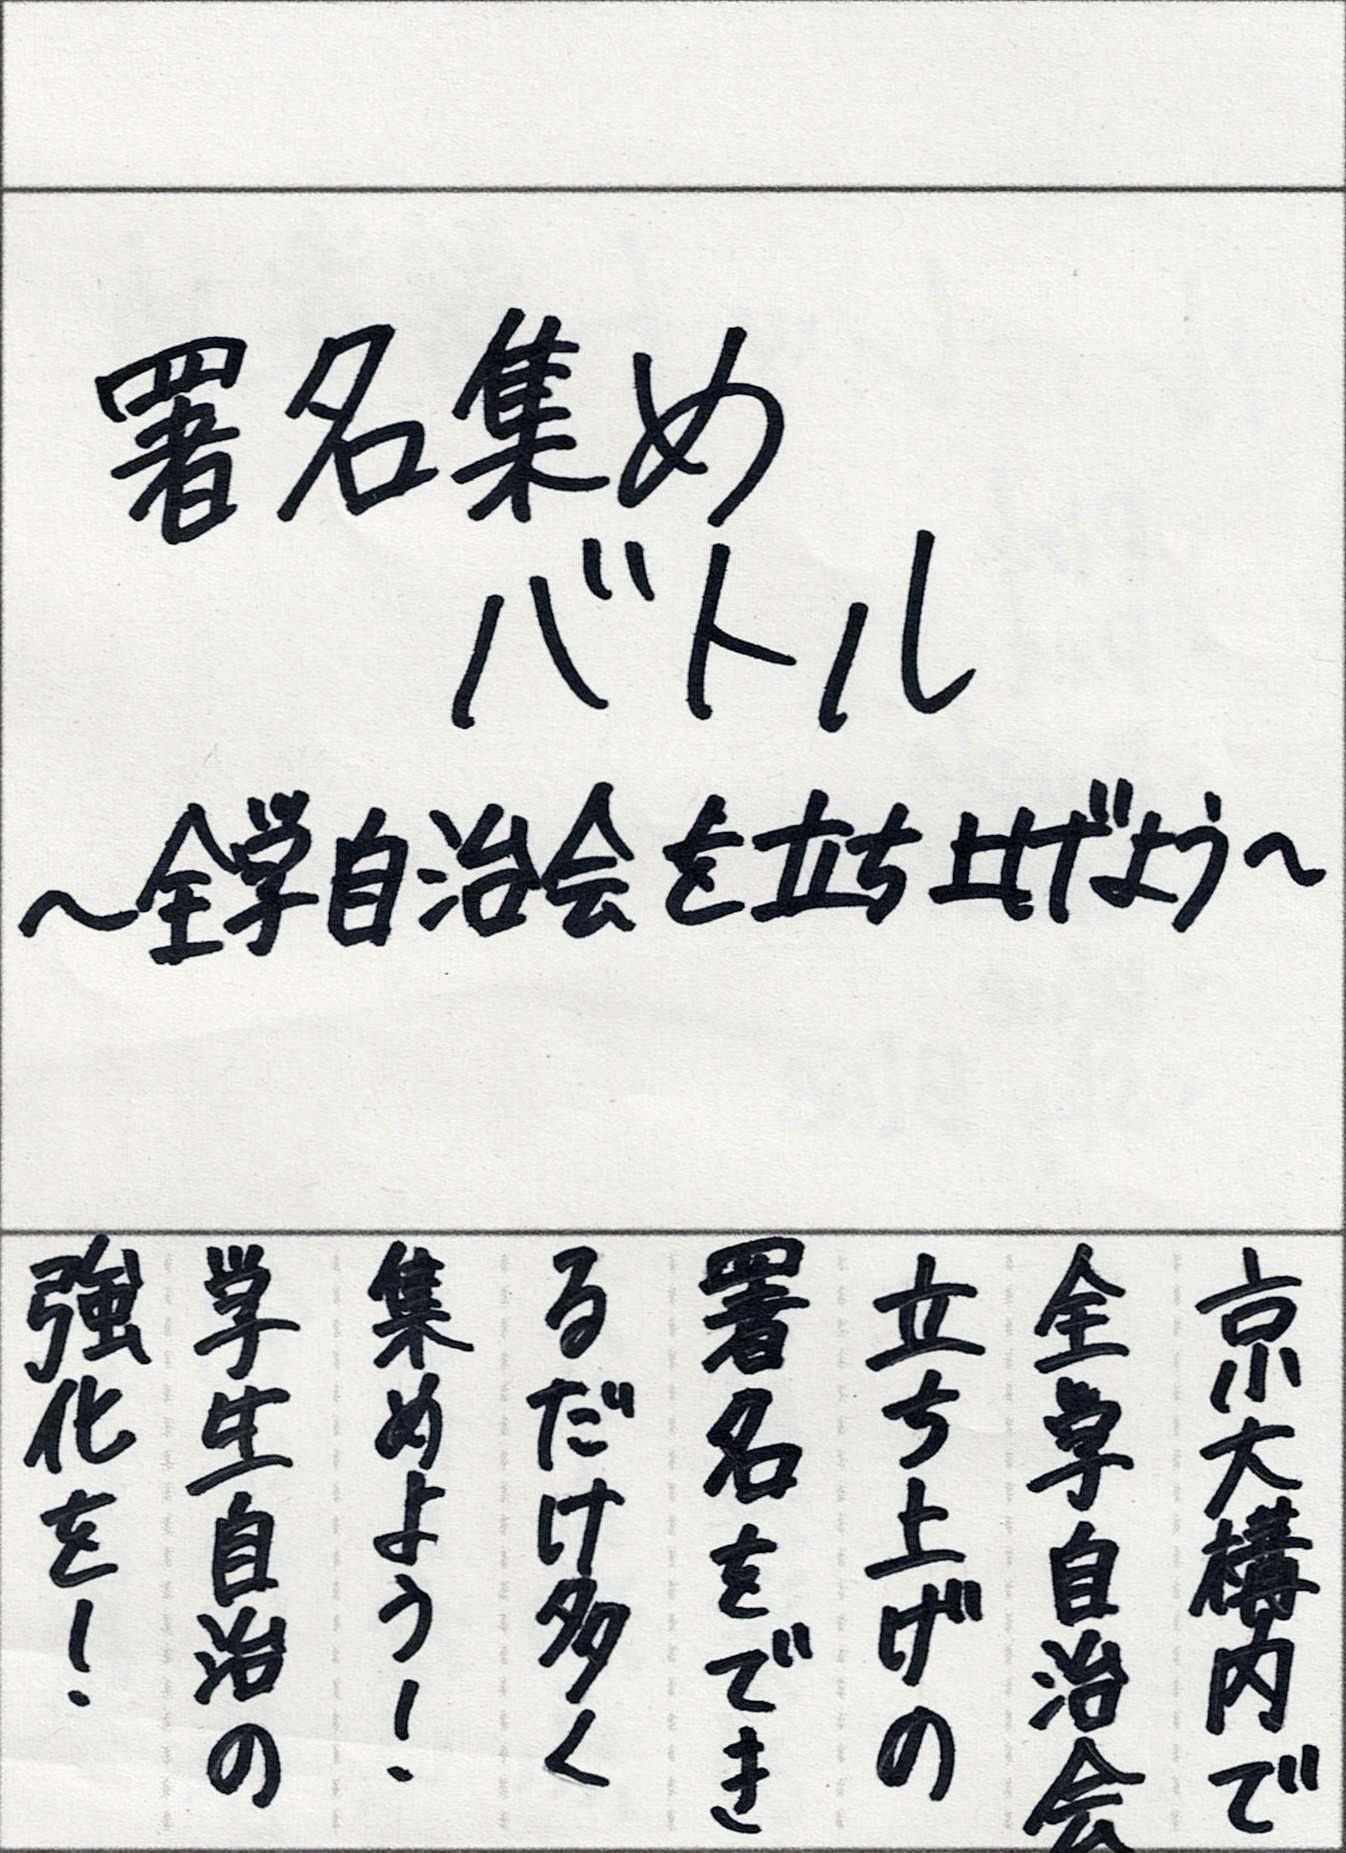 署名集め
バトル
～全学自治会を立ち上げよう～
京大構内で
全学自治会
立ち上げの
署名をでき
るだけ多く
集めよう！
学生自治の
強化を！